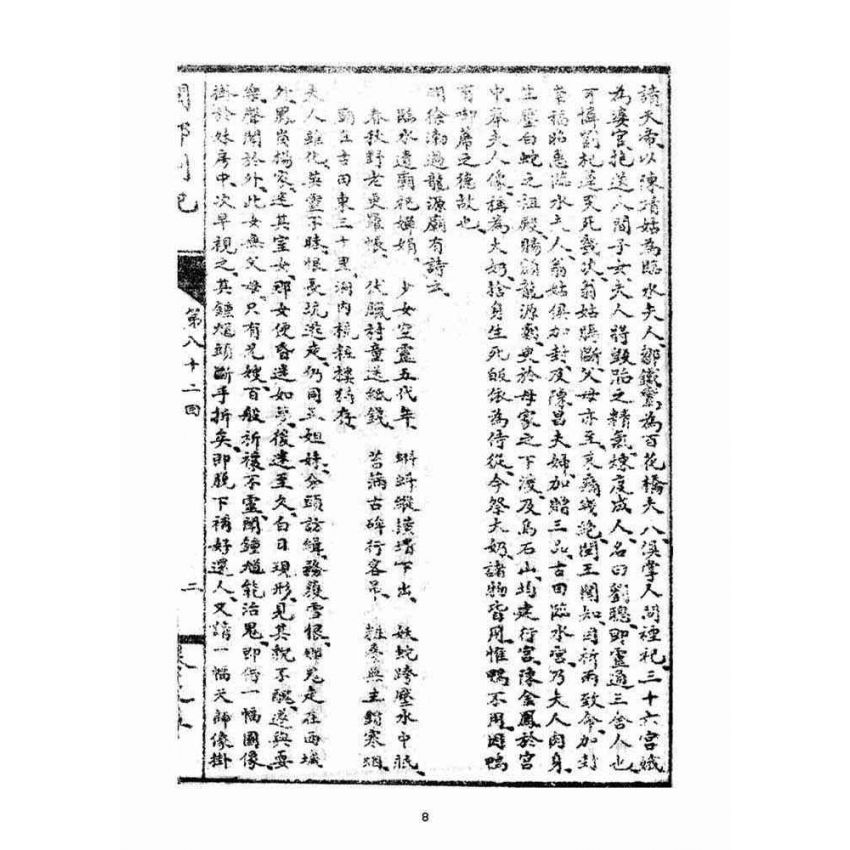 請天帝以陳靖姑為臨水夫人鄒鐵鸞為百花橋夫八俱掌人間種祀三十六宮娥
為婆官抱送八間子女夫人將毀胎之精氣煉度成人名曰劉聰即靈通三舍人也
可憐劉杞蓮哭死幾次翁姑腸斷父母亦至哀痛幾絕閩王聞知因祈雨致命加封
崇福昭惠臨水夫人翁姑俱加封及陳昌夫婦加贈三品古田臨水宮乃夫人肉身
生壓白蛇之祖殿勝顯龍源廟與於母家之下渡及烏石山均建行宮陳金鳳於宮
中奉夫人像稱為大奶捨身生死皈依為侍從今祭大奶諸物皆用惟鴨不用因鴨
有啣蓆之德故也
明徐渤過龍源廟有詩云
臨水遺廟祀嬋娟 少女空靈五代年 蝌蚪縱橫墻下出 妖蛇跨壓水中眠
春秋野老更羅帳 伏臘村童送紙錢 苔蘚古碑行客吊 粧奩無主鎖寒烟
廟在古田東三十里洞內梳粧樓猶存
夫人雖化英靈不昧恨長坑逃走仍同五姐妹分頭訪緝務獲雪恨那鬼走在西城
外鳳崗楊家迷其室女那女便昏迷如夢後迷至久白日現形見其貌不醜遂與耍
樂聲聞於外此女無父母只有兄嫂百般祈禳不靈聞鍾馗能治鬼即倩一幅圖像
掛於妹房中次早視之其鍾馗頭斷手折矣即脫下補好還人又請一幅天師像掛
閩都別記
第八十二回
二
8